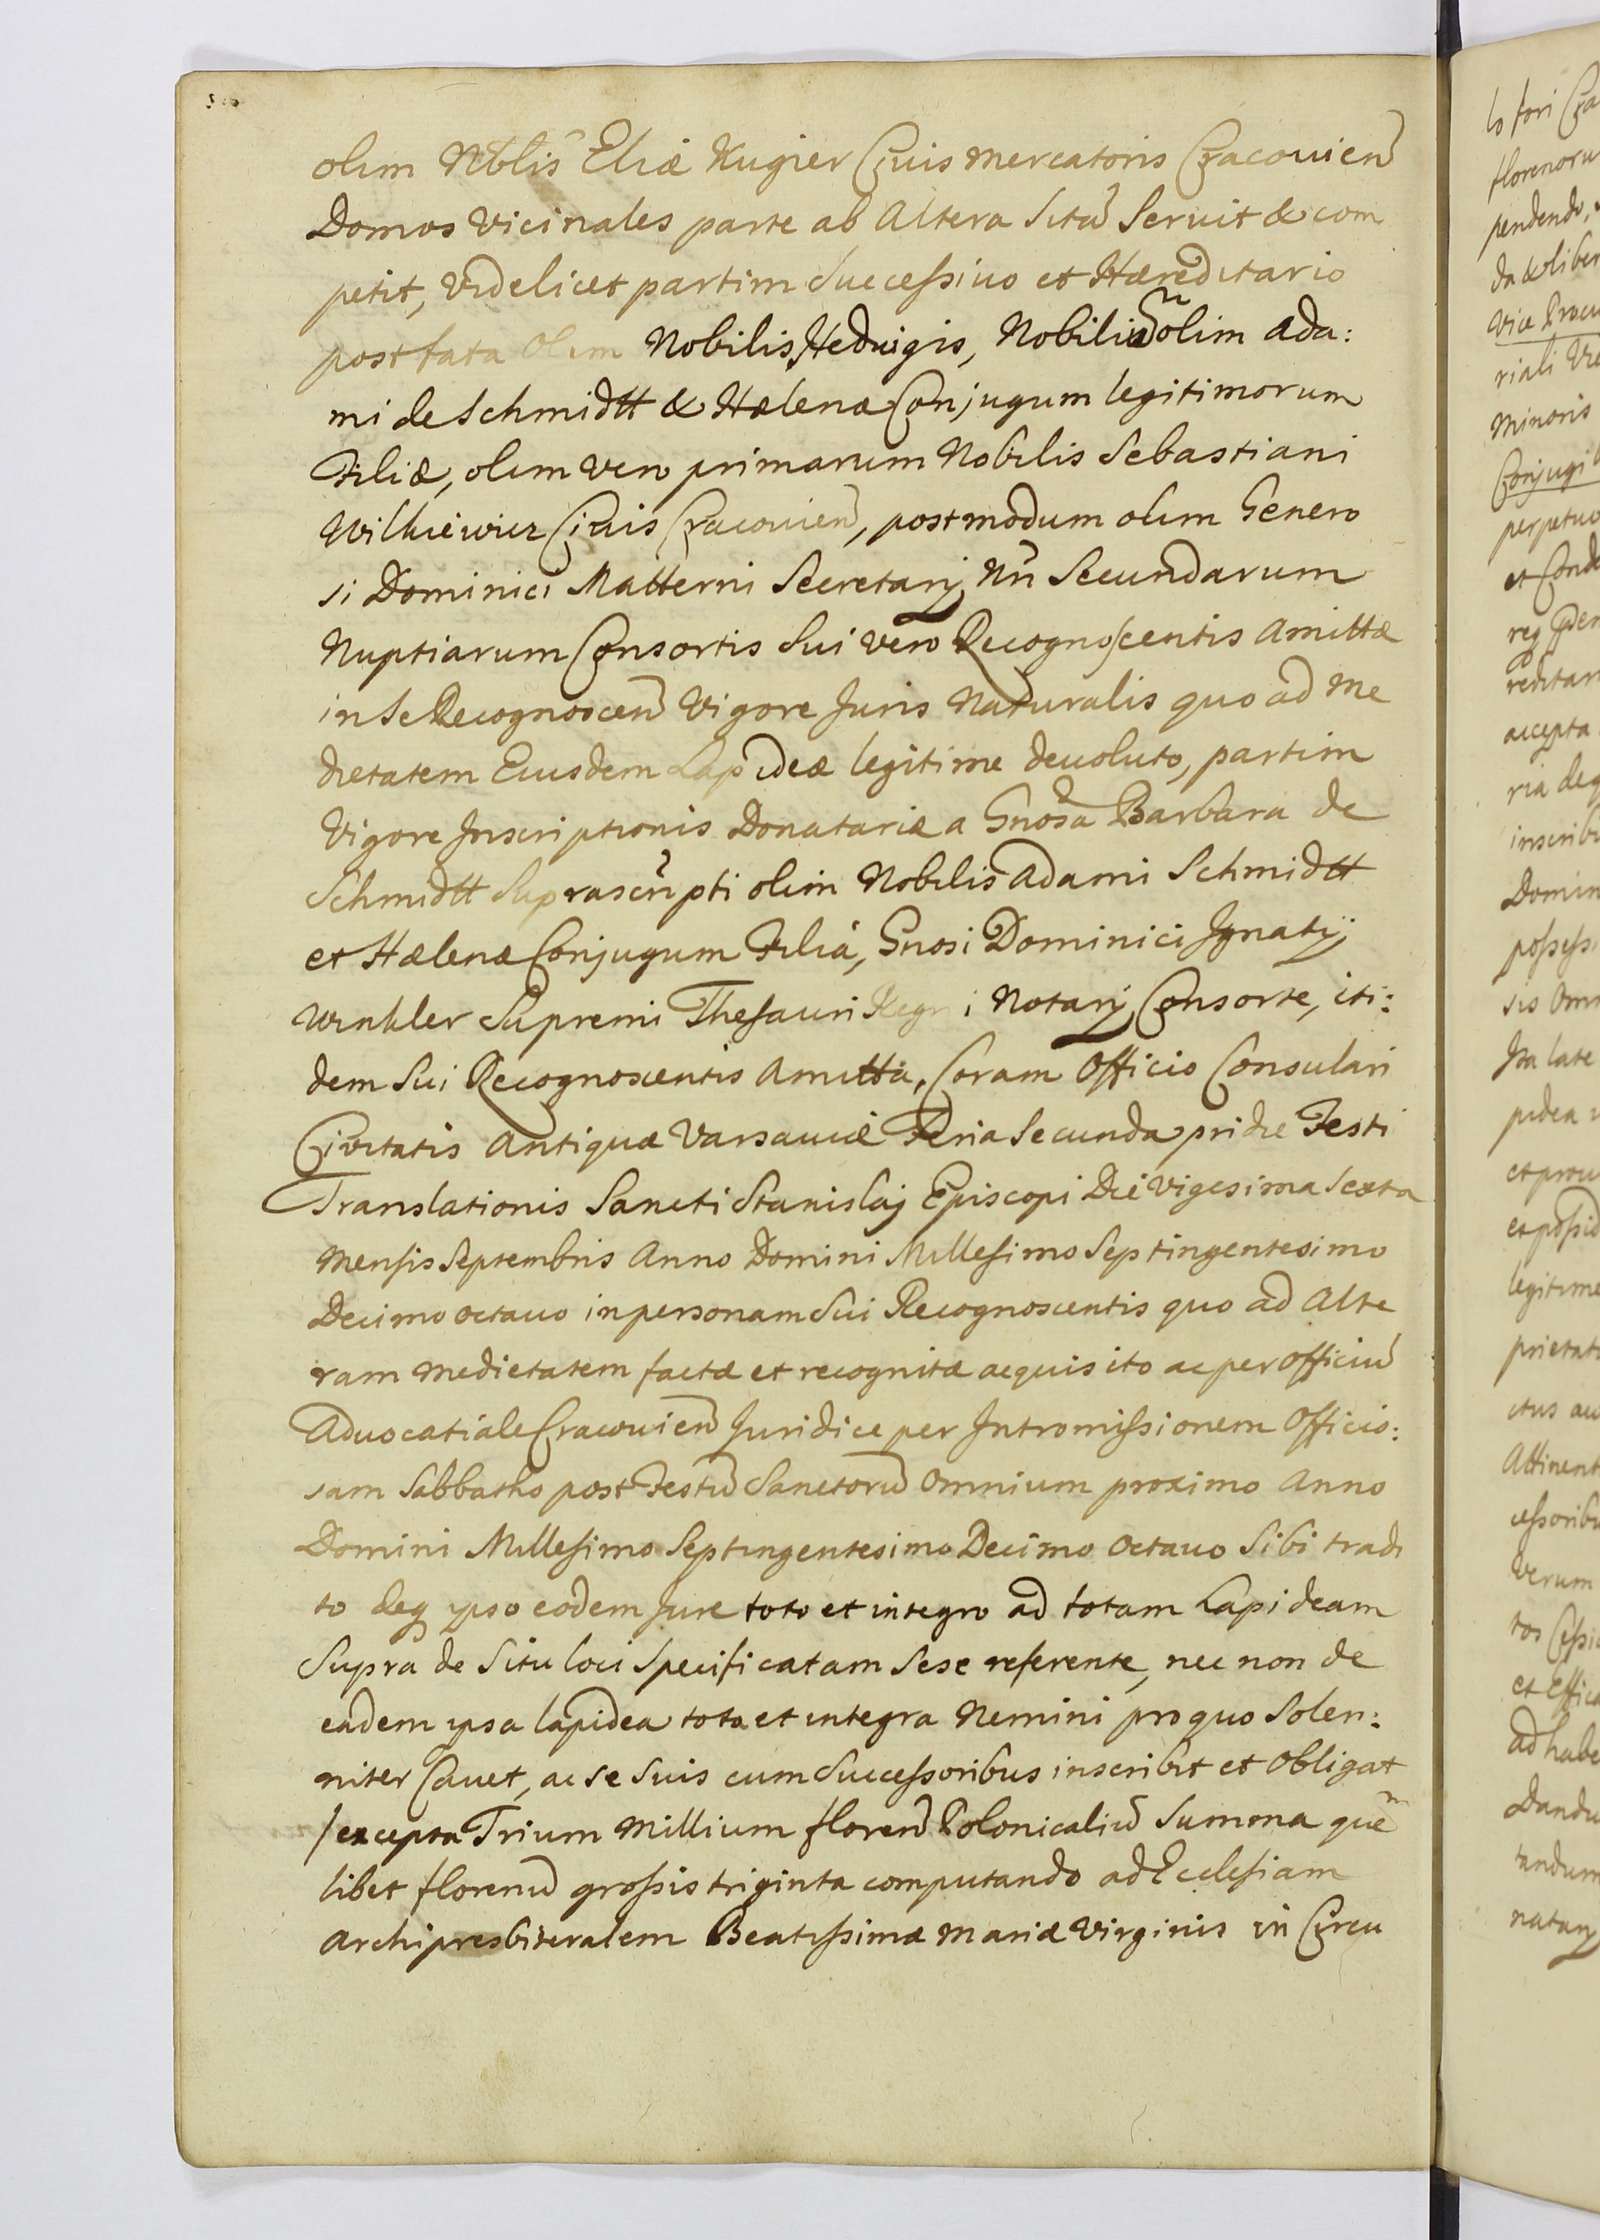 olim Nblis Eliæ Kugier Ciuis Mercatoris Cracouien
Domos Vicinales parte ab Altera Sitã Seruit & com
petit, Videlicet partim Successiuo et Hæreditario
post fata Olim Nobilis Heduigis, Nobiliũ olim Ada:
mi de Schmidtt & Hælenæ Conjugum legitimorum
Filiæ, olim vero primarum Nobilis Sebastiani
Wilkiewicz Ciuis Cracouien, postmodum olim Genero
si Dominici Matterni Secretarij Nri Secundarum
Nuptiarum Consortis Sui vero Recognoscentis Amittæ
in Se Recognoscen Vigore Juris Naturalis quo ad Me
dietatem Eiusdem Lapideæ legitime deuoluto, partim
Vigore Inscriptionis Donatariæ a Gnosa Barbara de
Schmidtt Suprascripti olim Nobilis Adami Schmidtt
et Hælenæ Conjugum Filiá, Gnosi Dominici Ignatij
Winkler Supremi Thesauri Regni Notarij Consorte, iti:
dem Sui Recognoscentis Amittá, Coram Officio Consulari
Ciuitatis Antiquæ Varsauiæ Feria Secunda pridie Festi
Translationis Sancti Stanislaj Episcopi Die Vigesima Sexta
Mensis Septembris Anno Domini Millesimo Septingentesimo
Decimo octauo in personam Sui Recognoscentis quo ad Alte
ram Medietatem factæ et recognitæ acquisito ac per Officiũ
Aduocatiale Cracouien Juridice per Intromissionem Officio:
sam Sabbatho post Festũ Sanctorũ Omnium proximo Anno
Domini Millesimo Septingentesimo Decimo Octauo Sibi tradi
to deq ipso eodem Jure toto et integro ad totam Lapideam
Supra de Situ loci Specificatam Sese referente, nec non de
eadem ipsa lapidea tota et integra Nemini pro quo Solen:
niter Cauet, ac se Suis cum Successoribus inscribit et Obligat
/excepta Trium Millium florenũ Polonicaliũ Summa quẽ
libet florenũ grossis triginta computando ad Ecclesiam
Archipresbiteralem Beatissimæ Mariæ Virginis in Circu
lo fori Cra
florenoru
pendendo,
da & liber
Vice Procu
riali
Minoris
Conjugi
perpetuo
et Conde
req
reditar
accepta
ria deq
inscribi
Domin
possessi
sis Omn
Ita late
pidea
et prou
et possid
legitime
prietati
ctus au
Attinent
cessoribu
Verum
tos Cessi
et Effica
ad habe
Dandu
tandum
natarij